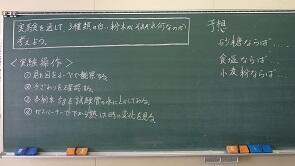 実験を通して、3種類の白い粉末がそれぞれ何なのか
考えよう。
<実験操作>
① 見た目をルーペで観察する。
② 手ざわりを確認する。
③ 各粉末 5gを試験管の水にとかしてみる。
④ ガスバーナーで下から熱した時の変化を見る。
予想
砂糖ならば…
食塩ならば…
小麦粉ならば…